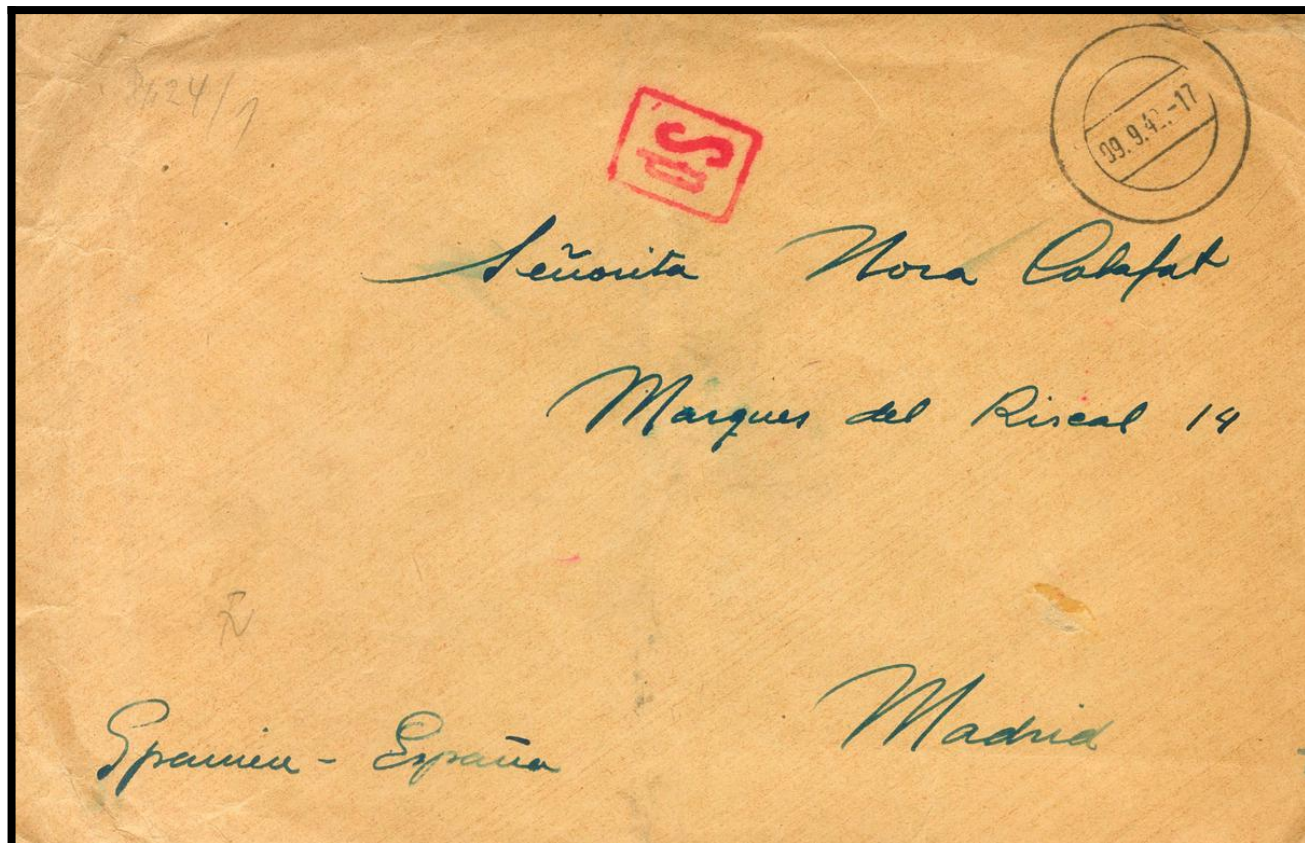 S
Señorita Nora Calafat
Marques del Riscal 14
Madrid
Spanien - España